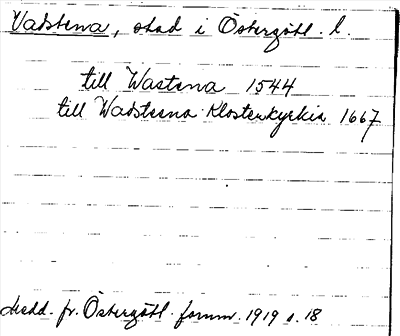 Vadstena, stad i Östergötl. l.
till Wastena 1544
till Wadsteena Klosterkyrkia 1667
Medd. fr. Östergötl. fornm. 1919 s. 18